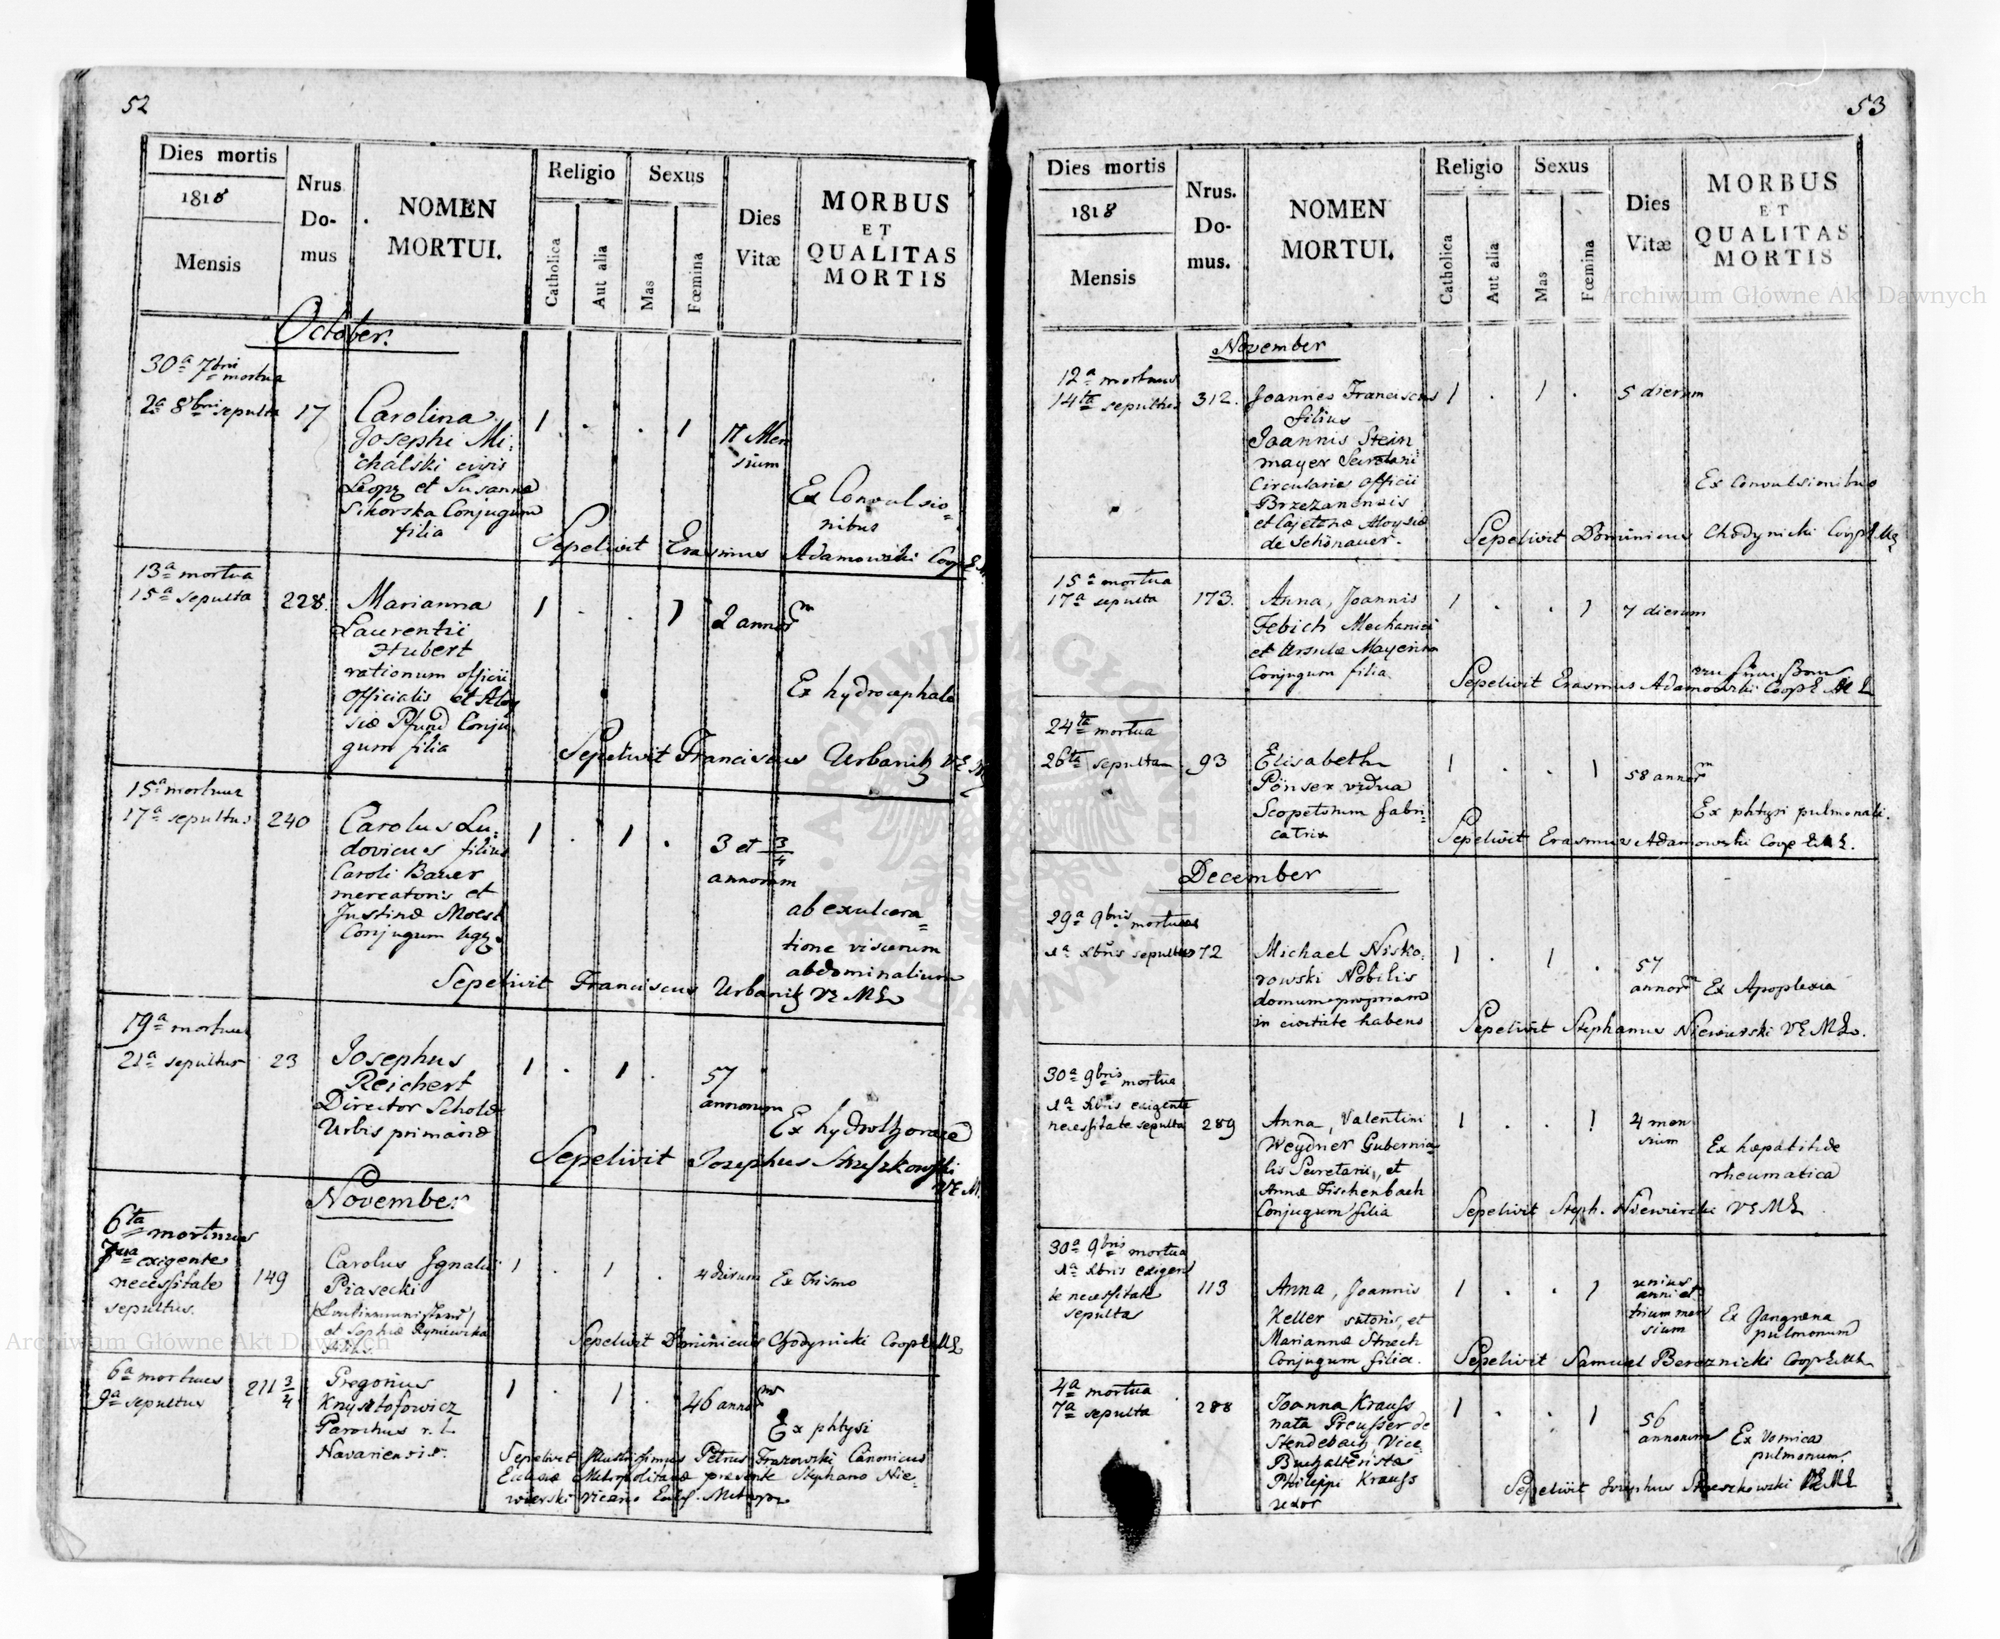 52
Dies mortis
1818
Mensis
Nrus
Do-
mus
NOMEN
MORTUI.
Religio
Catholica
Aut alia
Sexus
Mas
Fœmina
Dies
Vitæ
MORBUS
ET
QUALITAS
MORTIS
October.
30ª 7bri mortua
2ª 8bri sepulta
17
Carolina
Josephi Mi-
chalski civis
Leop et Susanna
Sikorska Conjugum
filia
1 . . 1
17 Men
sium
Ex Convulsio-
nibus
Sepelivit Erasmus Adamowski Coop
13ª mortua
15ª sepulta
228.
Marianna
Laurentii
Hubert
rationum officii
officialis et Aloy
siæ Pfund Conju
gum filia
1 . . 1
2 annorm
Ex hydrocephalo
Sepelivit Franciscus Urbanik VE
15ª mortuus
17ª sepultus
240
Carolus Lu-
dovicus filius
Caroli Bauer
mercatoris et
Justinæ Moest
Conjugum
1 . 1 .
3 et 3/4
annorum
ab exulcera-
tione viscerum
abdominalium
Sepelivit Franciscus Urbanik VE ML
19ª mortuus
21ª sepultus
23
Josephus
Reichert
Director Scholæ
Urbis primariæ
1 . 1 .
57
annorum
Ex hydrothorace
Sepelivit Josephus Streszkowski
VE M.
November.
6ta mortuus
7ma exigente
necessitate
sepultus.
149
Carolus Ignatius
Piasecki
et Sophiæ
filius
1 . 1 .
4 dierum
Ex Trismo
Sepelivit Dominicus Chodynicki Coop E ML
6ª mortuus
9ª sepultus
211 3/4
Gregorius
Knysztofowicz
Parochus r. l.
Navariensis.
1 . 1 .
46 annorm
Ex phtysi
Sepelivit Illustrissimus Petrus Frazowski Canonicus
Ecclesiæ Metropolitanæ præsente Stephano Nie-
wierski Vicario Eccl. Metrop
53
Dies mortis
1818
Mensis
Nrus.
Do-
mus.
NOMEN
MORTUI.
Religio
Catholica
Aut alia
Sexus
Mas
Fœmina
Dies
Vitæ
MORBUS
ET
QUALITAS
MORTIS
November
12ª mortuus
14ta sepultus
312.
Joannes Franciscus
filius
Joannis Stein
mayer Secretarii
Circularis officii
Brzezanensis
et Cajetanæ Aloysiæ
de Schönauer.
1 . 1 .
5 dierum
Ex Convulsionibus
Sepelivit Dominicus Chodynicki Coop E ML
15ª mortua
17ª sepulta
173.
Anna, Joannis
Febich Mechanici
et Ursulæ Mayerin
Conjugum filia
1 . . 1
7 dierum
Sepelivit Erasmus Adamowski Coop E M L
24ta mortua
26ta sepulta
93
Elisabetha
Pönser vidua
Scopetorum fabri-
catrix
1 . . 1
58 annorm
Ex phtysi pulmonali.
Sepelivit Erasmus Adamowski Coop E M L.
December
29ª 9bris mortuus
1ª Xbris sepultus
72
Michael Nisko-
rowski Nobilis
domum propriam
in civitate habens
1 . 1 .
57
annorm
Ex Apoplexia
Sepelivit Stephanus Niewierski VE ML.
30ª 9bris mortua
1ª Xbris exigente
necessitate sepulta
289
Anna, Valentini
Weydner Gubernia-
lis Secretarii, et
Annæ Fischenbach
Conjugum filia
1 . . 1
4 men
sium
Ex hæpatitide
rheumatica
Sepelivit Steph. Niewierski VE ML
30ª 9bris mortua
1ª Xbris exigen
te necessitate
sepulta
113
Anna, Joannis
Keller sutoris, et
Mariannæ Strach
Conjugum filia.
1 . . 1
unius
anni et
trium men
sium
Ex Gangræna
pulmonum
Sepelivit Samuel Bereznicki Coop E ML
4ª mortua
7ª sepulta
288
Joanna Krauss
nata Preusser de
Stendebach, Vice
Buchalteristæ
Philippi Krauss
uxor
1 . . 1
56
annorum
Ex Vomica
pulmonum.
Sepelivit Josephus Streszkowski VE ML
Archiwum Główne Akt Dawnych
Archiwum Główne Akt Dawnych
ARCHIWUM GŁÓWNE AKT DAWNYCH